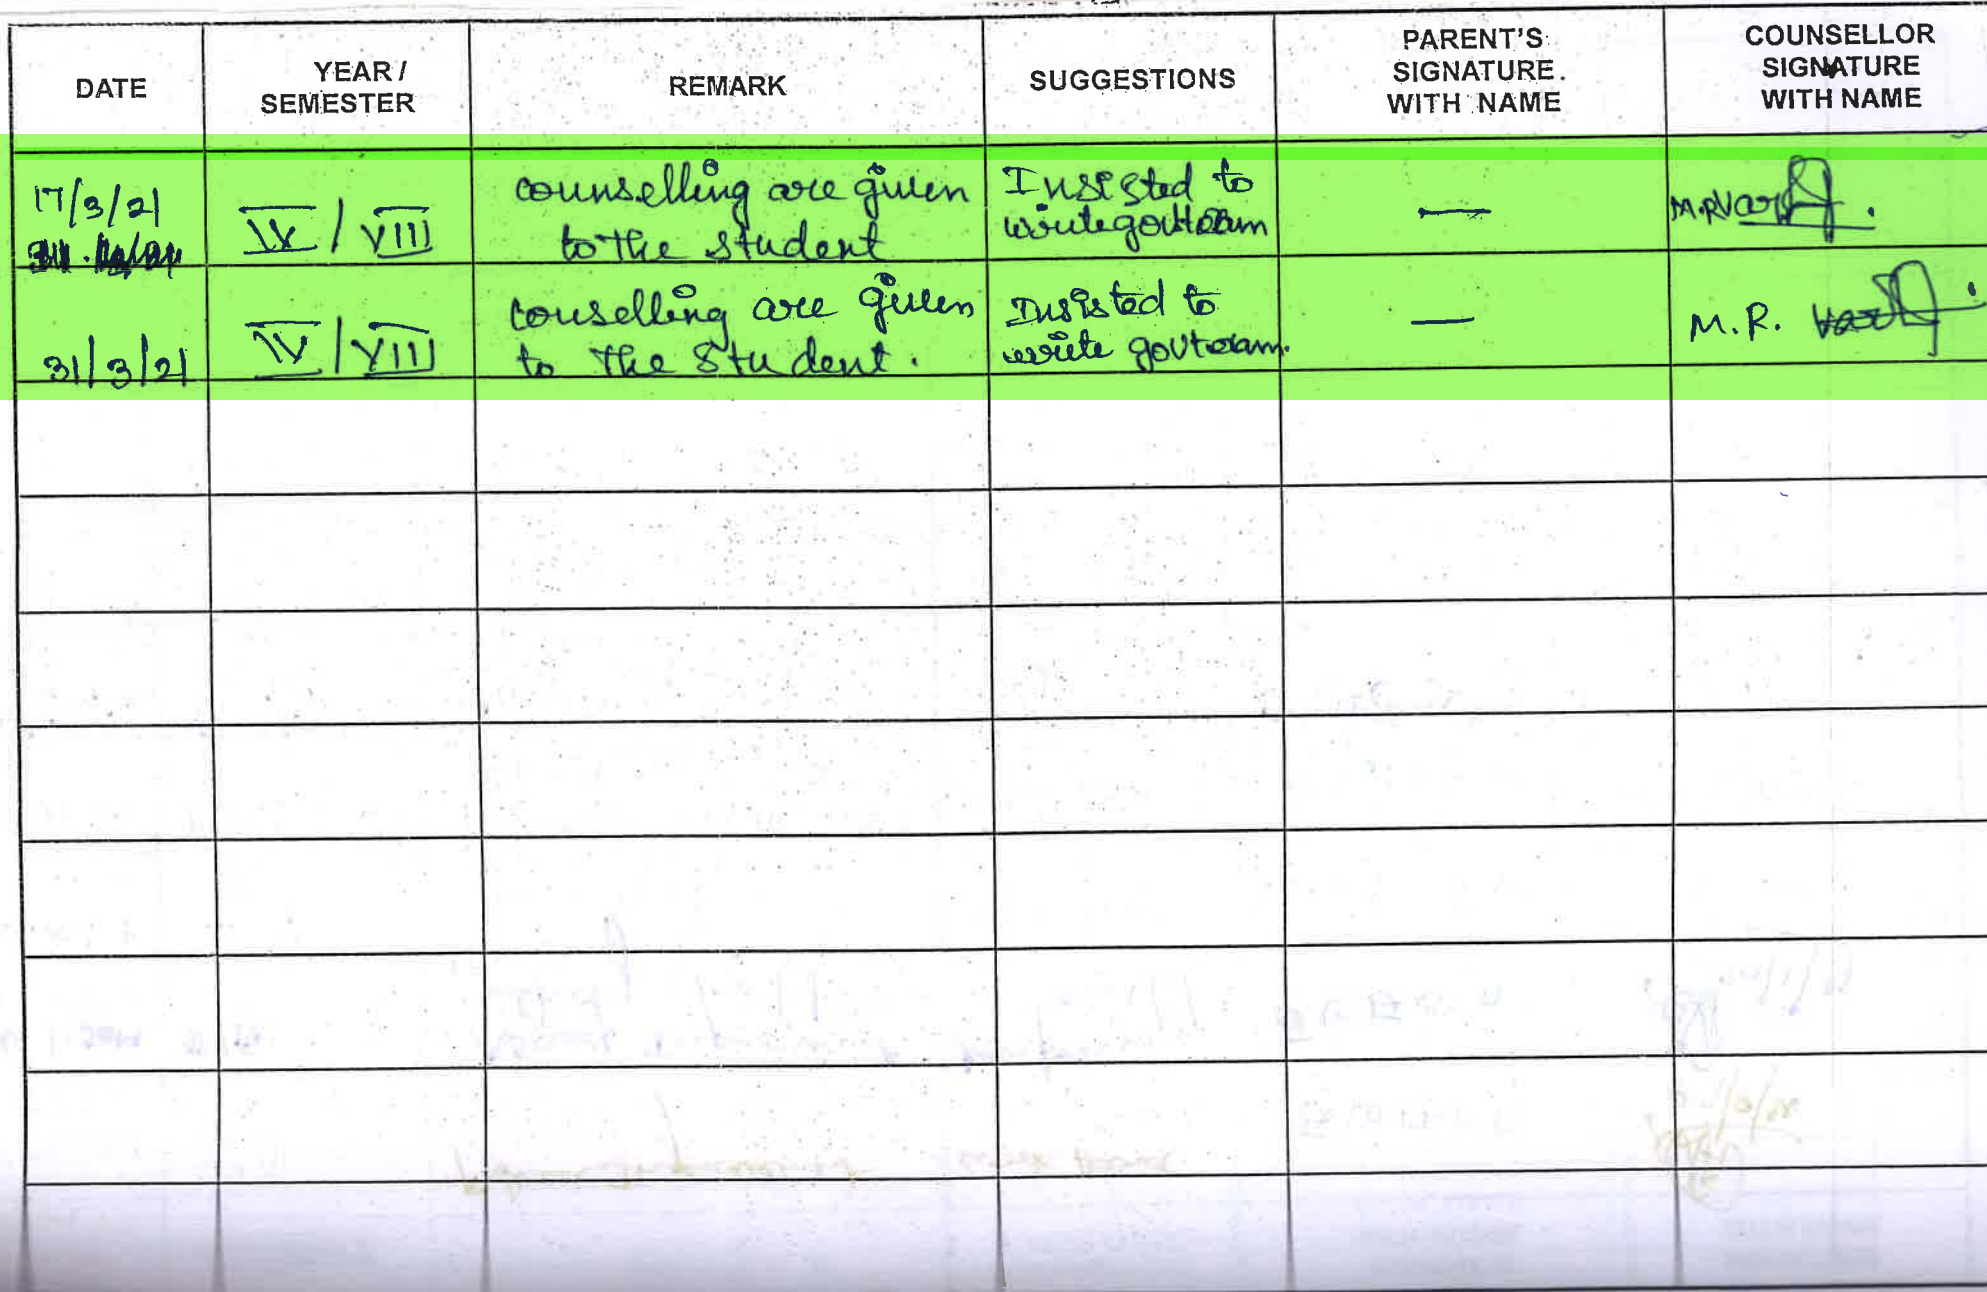 DATE
YEAR /
SEMESTER
REMARK
SUGGESTIONS
PARENT'S
SIGNATURE.
WITH NAME
COUNSELLOR
SIGNATURE
WITH NAME
17/3/21
IV / VIII
counselling are given
to the student
Insisted to
write govt exam
—
M.R
31/3/21
IV / VIII
couselling are given
to the student.
Insisted to
write govt exam.
—
M. R.